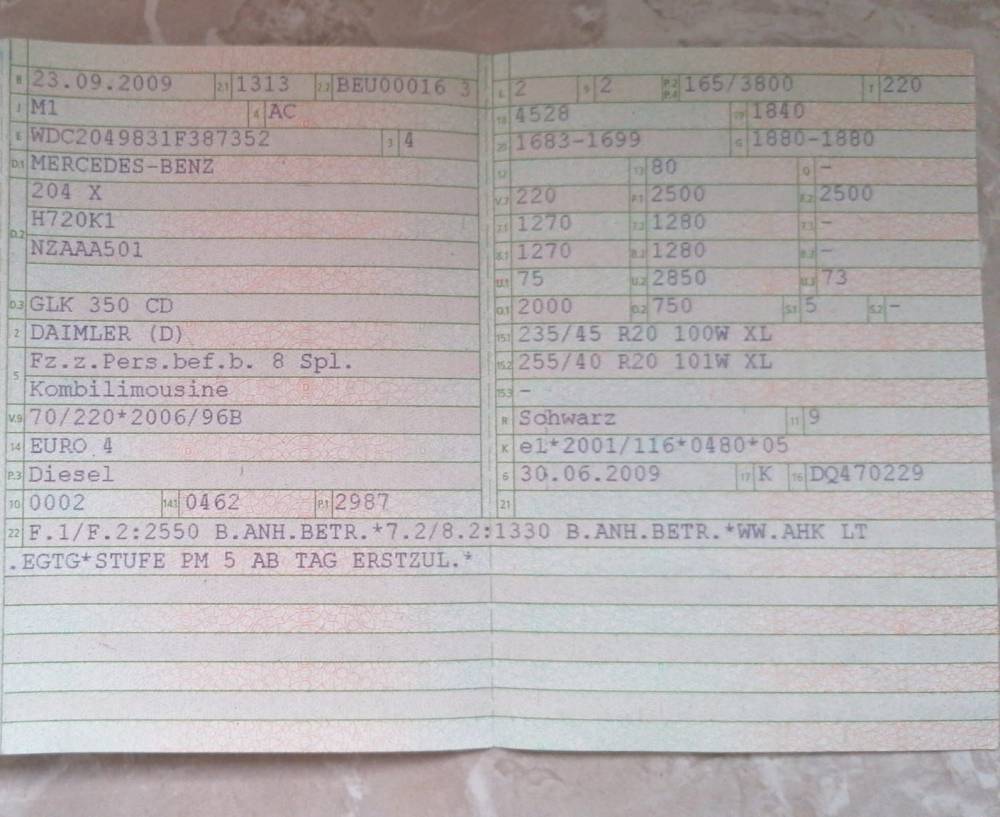 B 23.09.2009 2.1 1313 2.2 BEU00016 3
J M1 4 AC
E WDC2049831F387352 3 4
D.1 MERCEDES-BENZ
204 X
D.2 H720K1
NZAAA501
D.3 GLK 350 CD
2 DAIMLER (D)
5 Fz.z.Pers.bef.b. 8 Spl.
Kombilimousine
V.9 70/220*2006/96B
14 EURO 4
P.3 Diesel
10 0002 14.1 0462 P.1 2987
L 2 9 2 P.2 P.4 165/3800 T 220
18 4528 19 1840
20 1683-1699 G 1880-1880
12 13 80 Q -
V.7 220 F.1 2500 F.2 2500
7.1 1270 7.2 1280 7.3 -
8.1 1270 8.2 1280 8.3 -
U.1 75 U.2 2850 U.3 73
O.1 2000 O.2 750 S.1 5 S.2 -
15.1 235/45 R20 100W XL
15.2 255/40 R20 101W XL
15.3 -
R Schwarz 11 9
K e1*2001/116*0480*05
6 30.06.2009 17 K 16 DQ470229
21
22 F.1/F.2:2550 B.ANH.BETR.*7.2/8.2:1330 B.ANH.BETR.*WW.AHK LT
.EGTG*STUFE PM 5 AB TAG ERSTZUL.*